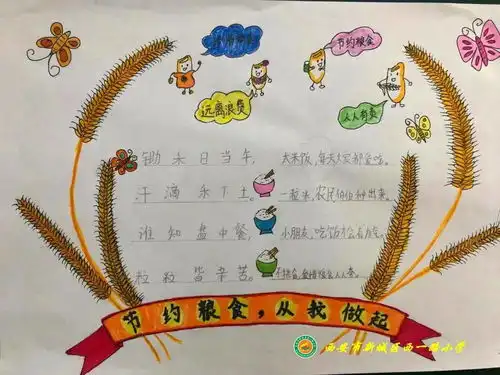 节约粮食
远离浪费
人人有责
锄禾日当午,
大米饭,每天大家都爱吃。
汗滴禾下土。
一粒米,农民伯伯种出来。
谁知盘中餐,
小朋友,吃饭
粒粒皆辛苦。
节约粮食,从我做起
西安市新城区西一路小学